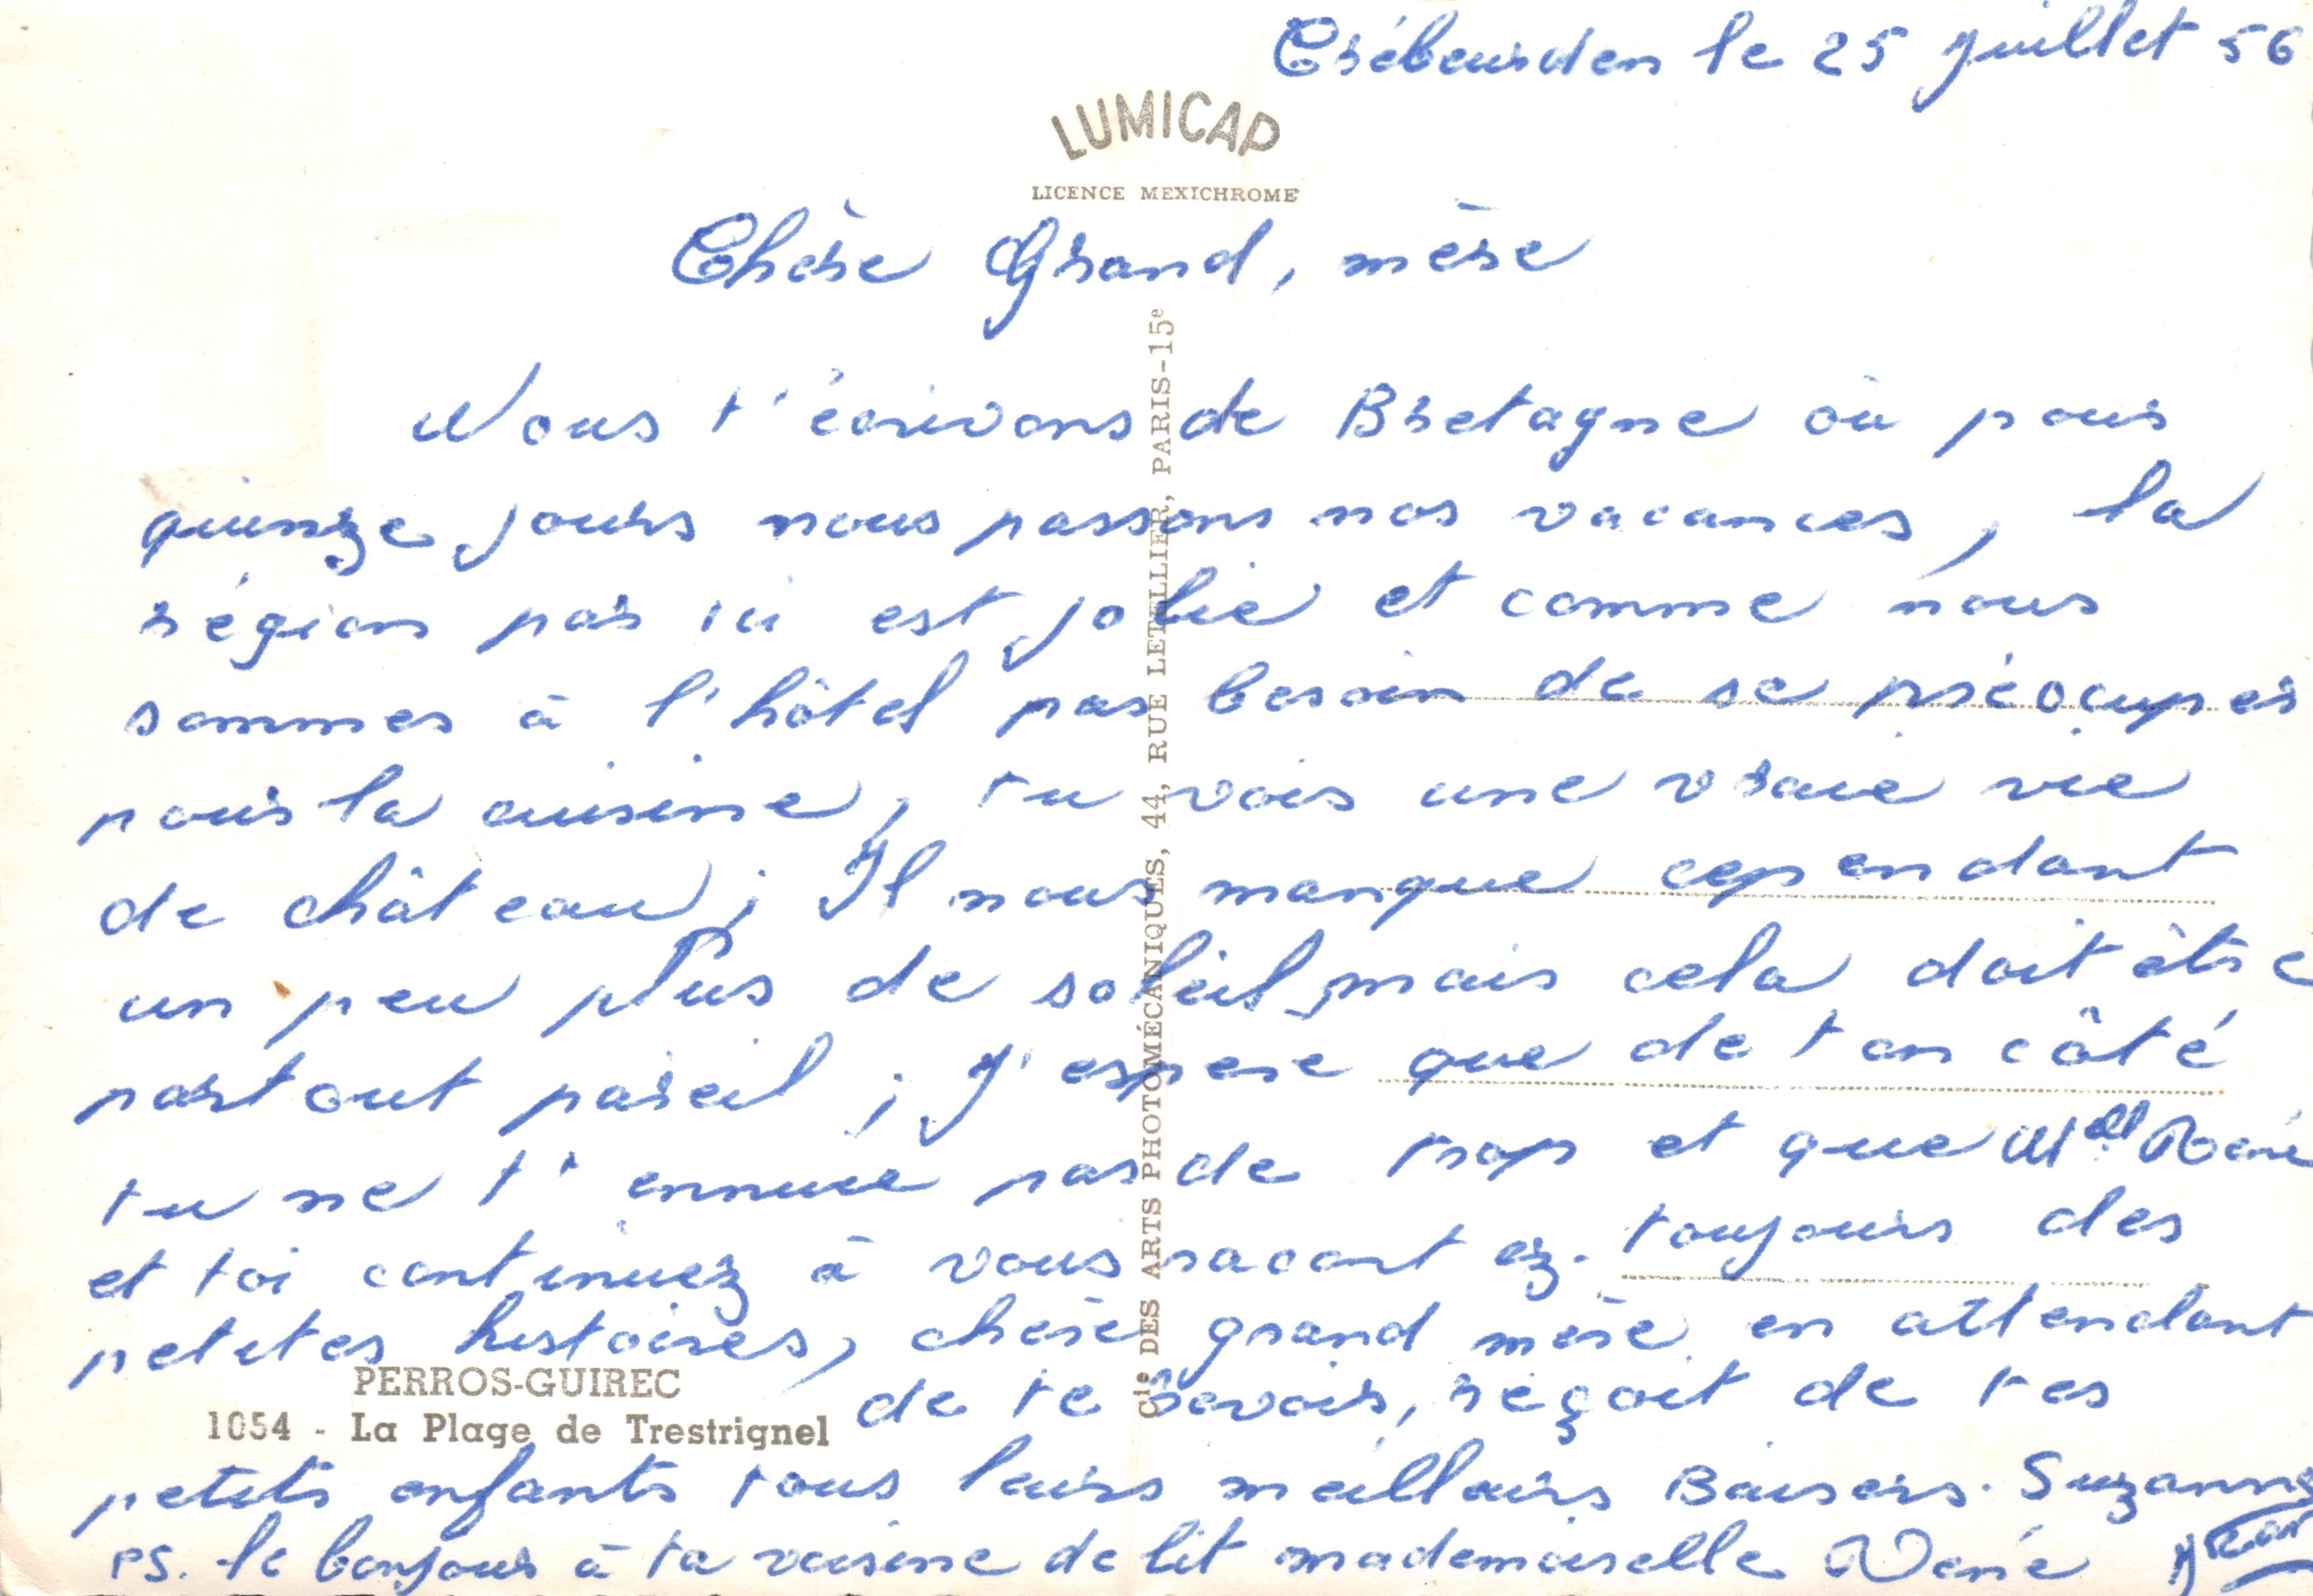 Trébeurden le 25 juillet 56
LUMICAP
LICENCE MEXICHROME
Chère Grand, mère
Nous t'écrivons de Bretagne où pour
quinze jours nous passons nos vacances, la
région par ici est jolie et comme nous
sommes à l'hôtel pas besoin de se préocuper
pour la cuisine, tu vois une vraie vie
de château; Il nous manque cependant
un peu plus de soleil, mais cela doit être
partout pareil; J'espère que de ton côté
tu ne t'ennuie pas de trop et que Mell
et toi continuez à vous racontez. toujours des
petites histoires, chère grand mère en attendant
de te revoir, réçoit de tes
petits enfants tous leurs meilleurs Baisers. Suzanne
PS. le bonjour à ta voisine de lit mademoiselle
PERROS-GUIREC
1054 - La Plage de Trestrignel
Cie DES ARTS PHOTOMÉCANIQUES, 44, RUE LETELLIER, PARIS-15e